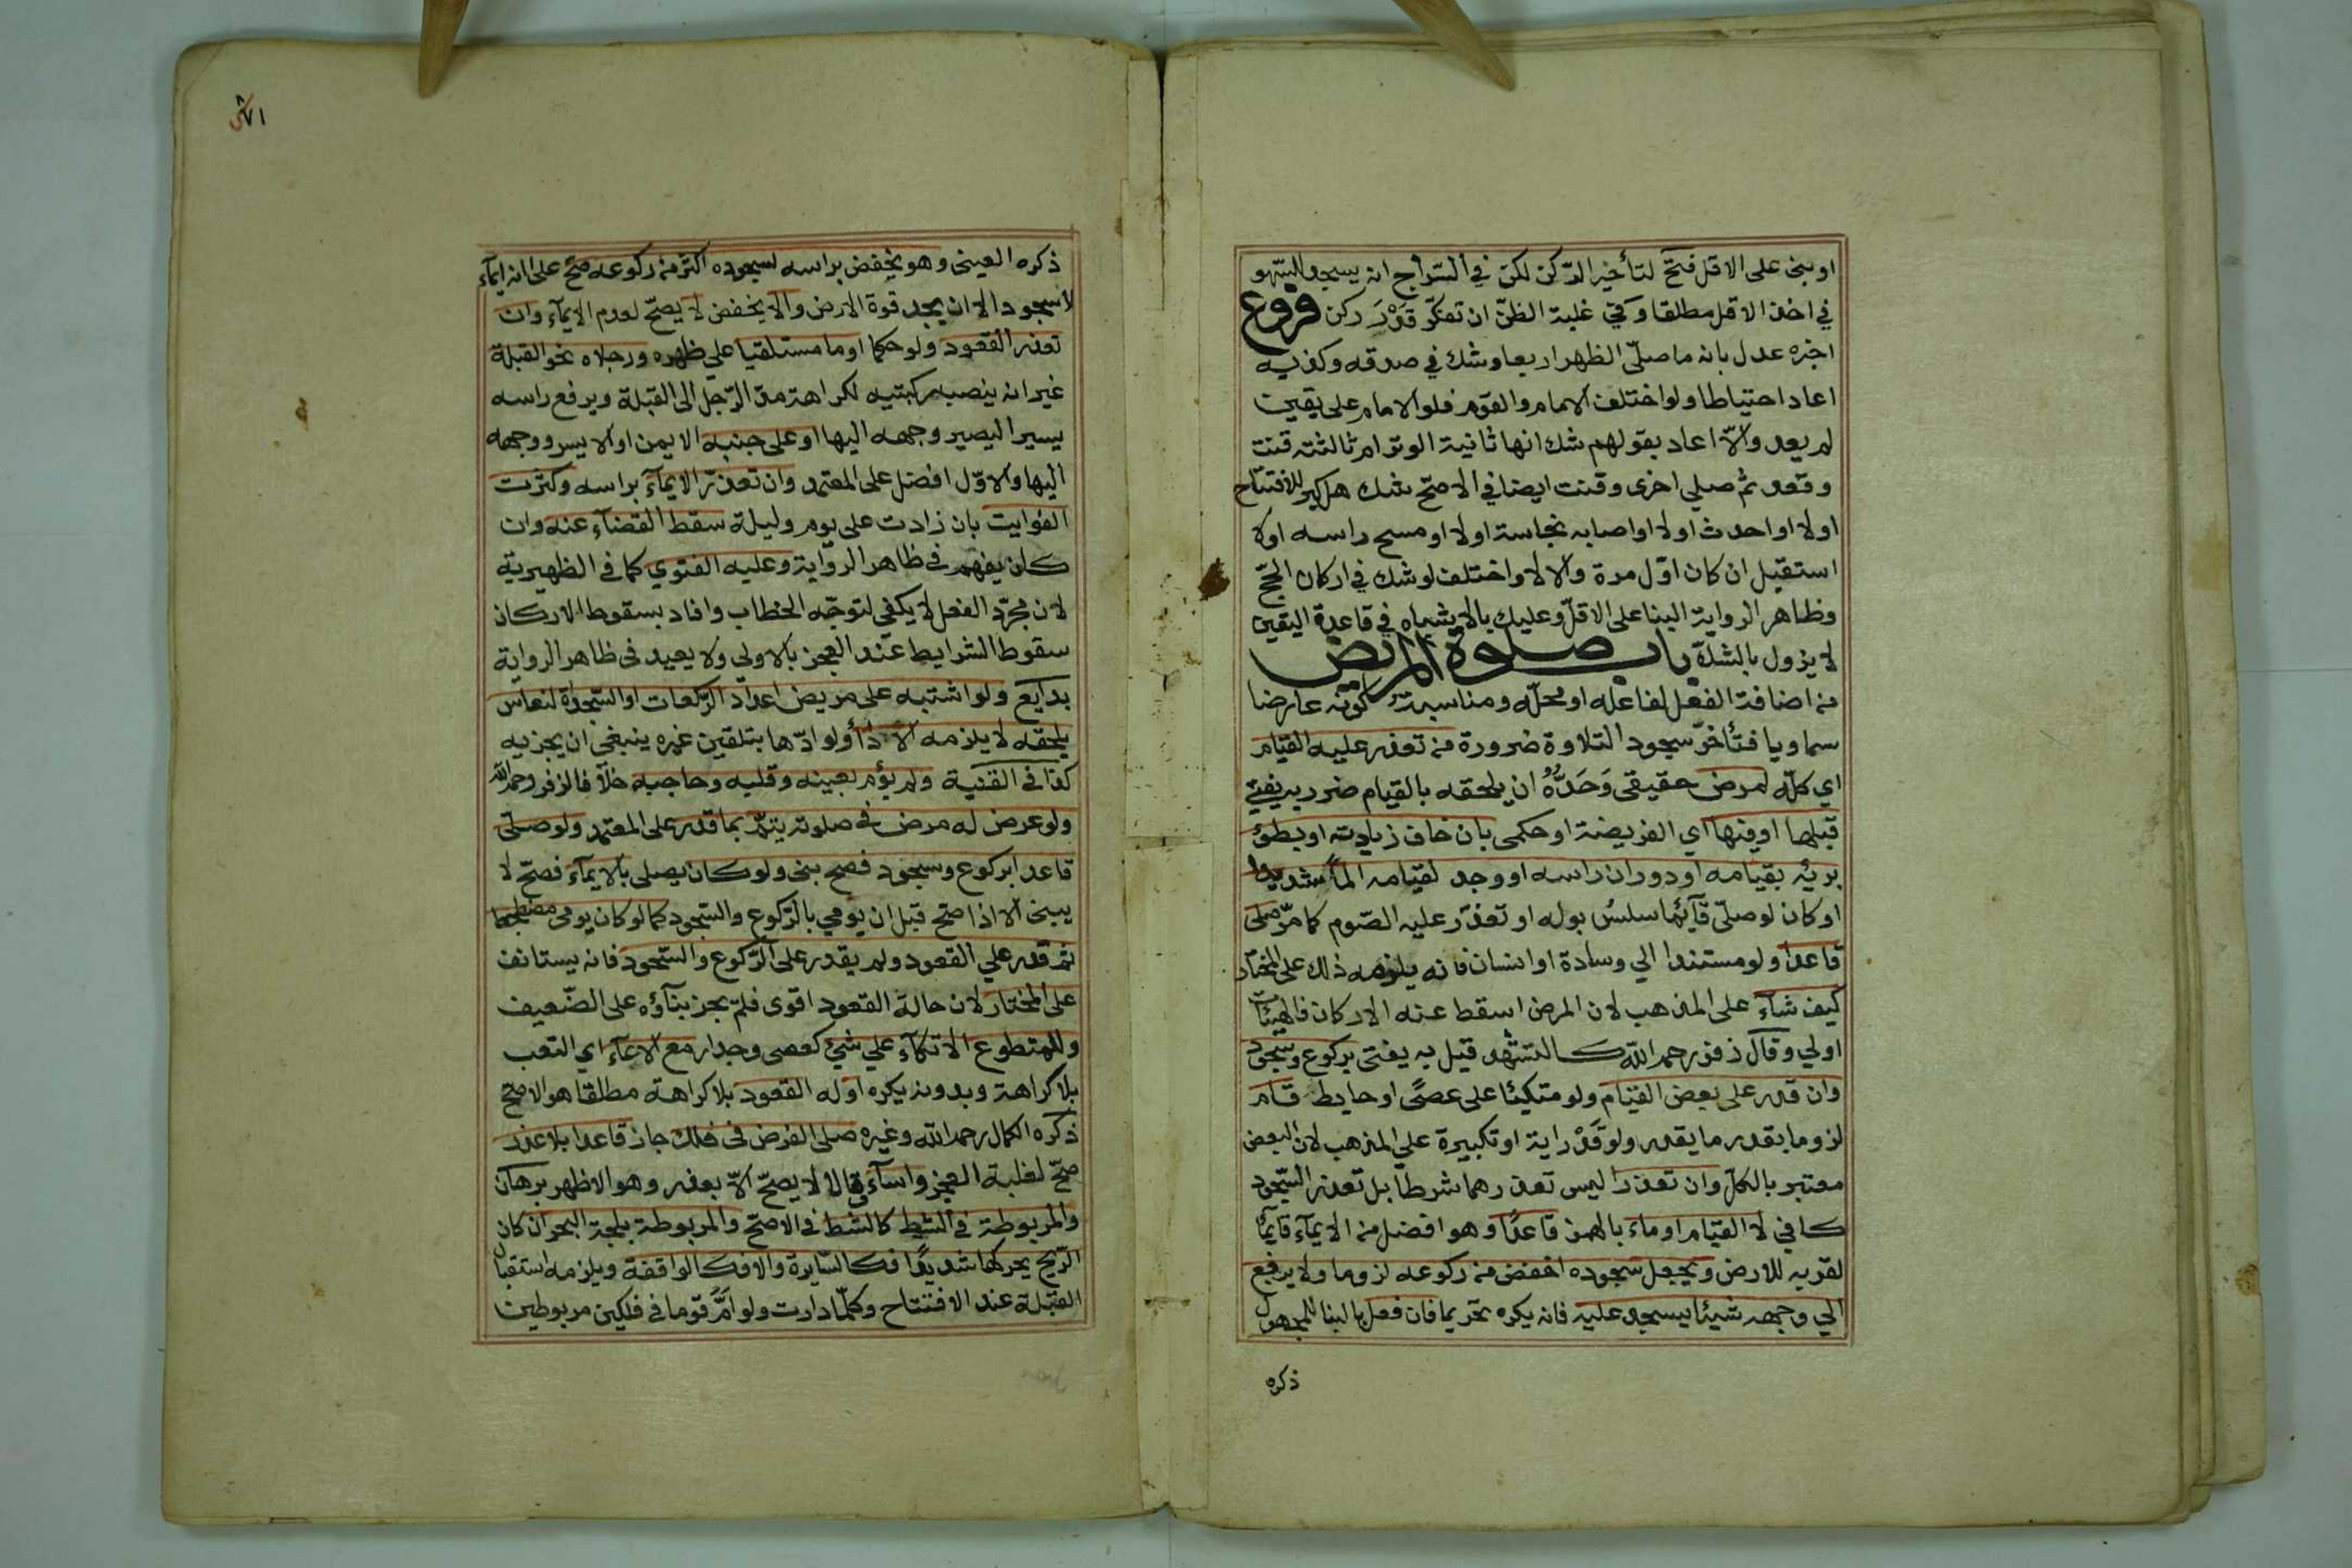 او بنى على الاقل فتح لتأخير الركن لكن في السراج انه يسجد للسهو
في اخذ الاقل مطلقا وفي غلبة الظن ان تفكر قدر ركن فروع
اخبره عدل بانه ما صلى الظهر اربعا وشك في صدقه وكذبه
اعاد احتياطا ولو اختلف الامام والقوم فلو الامام على يقين
لم يعد والا اعاد بقولهم شك انها ثانية الوتر ام ثالثته قنت
وقعد ثم صلى اخرى وقنت ايضا في الاصح شك هل كبر للافتتاح
اولا او احدث اولا او اصابه نجاسة اولا او مسح راسه اولا
استقبل ان كان اول مرة والا لا واختلف لو شك في اركان الحج
وظاهر الرواية البنا على الاقل وعليك بالاشباه في قاعدة اليقين
لا يزول بالشك باب صلوة المريض
من اضافة الفعل لفاعله او محله ومناسبته كونه عارضا
سماويا فتأخر سجود التلاوة ضرورة من تعذر عليه القيام
اي كله لمرض حقيقي وَحَدُّهُ ان يلحقه بالقيام ضرر به يفتى
قبلها او فيها اي الفريضة او حكمي بان خاف زيادته او بطؤ
برئه بقيامه او دوران راسه او وجد لقيامه الماً شديدا
او كان لو صلى قآئما سلس بوله او تعذر عليه الصوم كما مر صلى
قاعدا ولو مستندا الي وسادة او انسان فانه يلزمه ذلك على المختار
كيف شآء على المذهب لان المرض اسقط عنه الاركان فالهيئات
اولي وقال زفر رحمه الله كالتشهد قيل به يفتى بركوع وسجود
وان قدر على بعض القيام ولو متكئا على عصًى او حايط قام
لزوما بقدر ما يقدر ولو قَدْرَ اية او تكبيرة على المذهب لان البعض
معتبر بالكل وان تعذرا ليس تعذرهما شرطا بل تعذر السجود
كافي لا القيام اوماء بالهمز قاعدًا وهو افضل من الايمآء قآيمًا
لقربه للارض ويجعل سجوده اخفض من ركوعه لزوما ولا يرفع
الي وجهه شيئا يسجد عليه فانه يكره تحريما فان فعل بالبنا للمجهول
ذكره
٧١
ذكره العينى وهو يخفض براسه لسجوده اكثر من ركوعه صح على انه ايمآء
لا سجود الا ان يجد قوة الارض والا يخفض لا يصح لعدم الايمآء وان
تعذر القعود ولو حكما اوما مستلقيا على ظهره ورجلاه نحو القبلة
غير انه ينصب ركبتيه لكراهة مد الرجل الى القبلة ويرفع راسه
يسيرا ليصير وجهه اليها او على جنبه الايمن او الايسر ووجهه
اليها والاول افضل على المعتمد وان تعذر الايمآء براسه وكثرت
الفوايت بان زادت على يوم وليلة سقط القضآء عنه وان
كان يفهم في ظاهر الرواية وعليه الفتوي كما في الظهيرية
لان مجرد الفعل لا يكفي لتوجه الخطاب وافاد بسقوط الاركان
سقوط الشرايط عند العجز بالاولى ولا يعيد في ظاهر الرواية
بدايع ولو اشتبه على مريض اعداد الركعات او السجدة لنعاس
يلحقه لا يلزمه الادآ ولو ادّها بتلقين غيره ينبغي ان يجزيه
كذا في القنية ولم يؤم بعينه وقلبه وحاجبه خلافا لزفر رحمه الله
ولو عرض له مرض في صلوته يتم بما قدر على المعتمد ولو صلى
قاعدا بركوع وسجود فصح بنى ولو كان يصلى بالايمآء فصح لا
يبنى الا اذا صح قبل ان يؤمي بالركوع والسجود كما لو كان يومى مضطجعا
ثم قدر علي القعود ولم يقدر على الركوع والسجود فانه يستانف
على المختار لان حالة القعود اقوى فلم يجز بنآؤه على الضعيف
وللمتطوع الاتكآء علي شئ كعصى وجدار مع الاعيآء اي التعب
بلا كراهة وبدونه يكره اوله القعود بلا كراهة مطلقا هو الاصح
ذكره الكمال رحمه الله وغيره صلى الفرض في فلك جار قاعدا بلا عذر
صح لغلبة العجز واسآء وقالا لا يصح الا بعذر وهو الاظهر برهان
والمربوطة في الشط كالشط في الاصح والمربوطة بلجة البحر ان كان
الريح يحركها شديدًا فكالسايرة والا فكالواقفة ويلزمه استقبال
القبلة عند الافتتاح وكلما دارت ولو امّ قوما في فلكين مربوطين